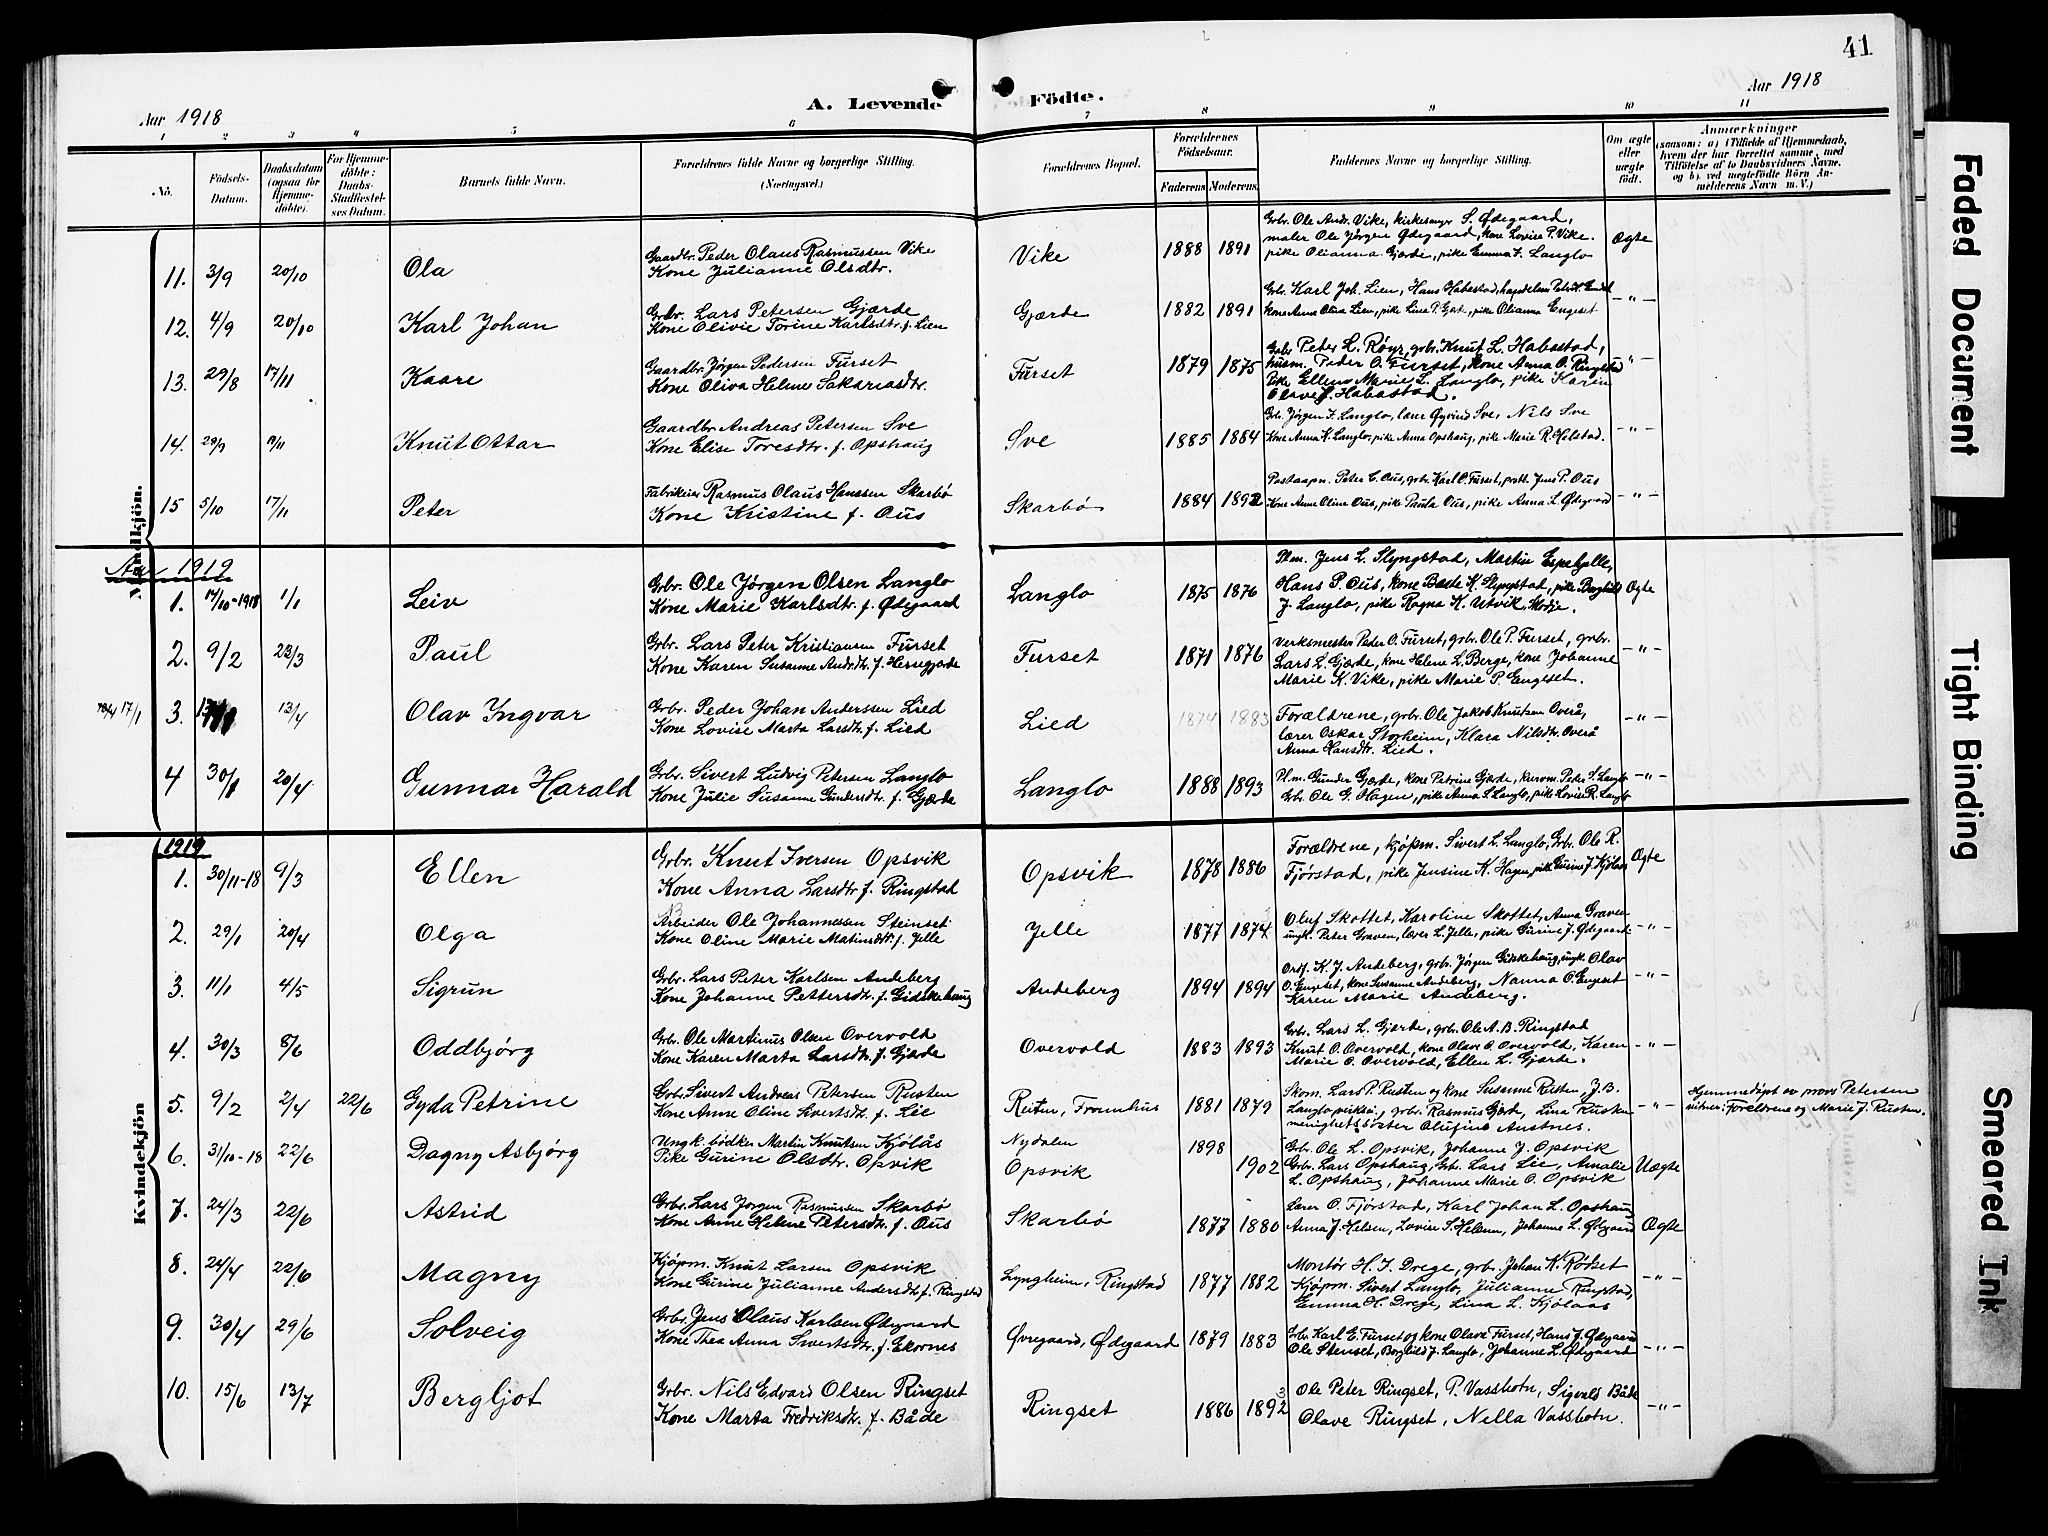 41
Aar 1918
A. Levende Födte.
Aar 1918
1 2 3 4 5 6 7 8 9 10 11
No.
Födsels-Datum.
Daabsdatum (ogsaa for Hjemme-döbte).
For Hjemme-döbte: Daabs-Stadfæstel-ses Datum.
Barnets fulde Navn.
Forældrenes fulde Navne og borgerlige Stilling. (Næringsvei.)
Forældrenes Bopæl.
Forældrenes Födselsaar.
Faderens Moderens
Faddernes Navne og borgerlige Stilling.
Om ægte eller uægte födt.
Anmærkninger
(saasom: a) i Tilfælde af Hjemmedaab, hvem der har forrettet samme, med Tilföielse af to Daabsvidners Navne, og b) ved uægtefödte Börn An-melderens Navn m. V.)
Mandkjön.
11. 3/9 20/10 Ola
Gaardbr. Peder Olaus Rasmussen Vike
Kone Julianne Olsdtr.
Vike 1888 1891
Grbr. Ole Andr. Vike, kirkesangr S. Ødegaard,
maler Ole Jørgen Ødegaard, kone Lovise P. Vike.
pike Olianna Gjærde, pike Emma J. Langlo
Ægte
12. 4/9 20/10 Karl Johan
Grbr. Lars Petersen Gjærde
Kone Olivie Torine Karlsdtr. f. Lien
Gjærde 1882 1891
Grbr. Karl Joh. Lien, Hans Habostad,
kone Anna Olina Lien, pike Lina P. Gjærde, pike Olianna Engeset
-"-
13. 29/8 17/11 Kaare
Gaardbr. Jørgen Pedersen Furset
Kone Oliva Helene Sakariasdtr.
Furset 1879 1875
Grbr Peter L. Røyr, grbr. Knut L. Habostad,
husm. Peder O. Furset, kone Anna O. Ringstad
Pike Ellen Marie L. Langlo, pike Karin
Olave J. Habostad.
"-
14. 29/9 11/11 Knut Ottar
Gaardbr Andreas Petersen Sve
Kone Elise Toresdtr. f. Opshaug
Sve 1885 1884
Grb. Jørgen J. Langlo, lærer Øyvind Sve, Nils Sve
Kone Anna K. Langlo, pike Anna Opshaug, pike Marie R. Helstad.
-"-
15 5/10 17/11 Peter
Fabrikeier Rasmus Olaus Hanssen Skarbø
Kone Kristine f. Ous
Skarbø 1884 1892
Postaapn. Peter C. Ous, grbr Karl O. Furset, Jens P. Ous
Kone Anne Oline Ous, pike Paula Ous, pike Anna L. Ødegaard
-"-
Aar 1919
1. 17/10-1918 1/1 Leiv
Grbr. Ole Jørgen Olsen Langlo
Kone Marie Karlsdtr f. Ødegaard
Langlo 1875 1876
Plm. Jens L. Slyngstad, Martin Espehjelle,
Hans P. Ous, kone Beate K. Slyngstad, pike Borghild
J. Langlo, pike Ragna K. Utvik, Skodje.
Ægte
2. 9/2 23/3 Paul
Grbr. Lars Peter Kristiansen Furset
Kone Karen Susanne Andrdtr f. Hersegjærde
Furset 1871 1876
Verksmester Peder O. Furset, grbr. Ole P. Furset, grbr.
Lars L. Gjærde, kone Helene L. Berge, kone Johanne
Marie K. Vike, pike Marie P. Engeset.
-"-
17/1 3. 13/4 Olav Ingvar
Grbr. Peder Johan Anderssen Lied
Kone Lovise Marta Larsdtr f. Lied
Lied 1874 1883
Forældrene, grbr. Ole Jakob Knutsen Overå,
lærer Oskar Storheim, Klara Nilsdtr. Overå
Anna Hansdtr. Lied.
-"-
4 30/1 20/4 Gunnar Harald
Grbr. Sivert Ludvig Petersen Langlo
Kone Julie Susanne Gundersdtr. f. Gjærde
Langlo 1888 1893
Plm. Gunder Gjærde, kone Petrine Gjærde, Peter S. Langlo
Grbr. Ole G. Hagen, pike Anna S. Langlo, pike Lovise R. Langlo
-"-
Kvindekjön
1919
1. 30/11-18 9/3 Ellen
Grbr. Knut Iversen Opsvik
Kone Anna Larsdtr f. Ringstad
Opsvik 1878 1886
Forældrene, kjøpm. Sivert L. Langlo, Grbr. Ole R.
Fjørstad, pike Jensine K. Hagen, pike Gurine J. Kjølaas
Ægte
2. 29/1 20/4 Olga
Arbeider Ole Johannessen Steinset
Kone Oline Marie Matinsdtr f. Jelle
Jelle 1877 1874
Oluf Skottet, Karoline Skottet, Anna Graven
ungk. Peter Graven, lærer L. Jelle, pike Gurine J. Ødegaard
-"-
3. 11/1 4/5 Sigrun
Grbr. Lars Peter Karlsen Andeberg
Kone Johanne Pettersdtr f. Gidskehaug
Andeberg 1894 1894
Ordf. K. J. Andeberg, grbr. Jørgen Gidskehaug, ungk. Olav
O. Engeset, kone Susanne Andeberg, Nanna O. Engeset
Karen Marie Andeberg.
-"-
4. 30/3 8/6 Oddbjørg
Grbr. Ole Martinus Olsen Overvold
Kone Karen Marta Larsdtr f. Gjærde
Overvold 1883 1893
Grbr. Lars L. Gjærde, grbr. Ole A. B. Ringstad
Knut O. Overvold, kone Olave O. Overvold, Karen
Marie O. Overvold, Ellen L. Gjærde.
-"-
5. 9/2 2/4 22/6 Gyda Petrine
Grbr. Sivert Andreas Petersen Rusten
Kone Anne Oline Sivertsdtr. f. Lie
Reiten, Tromhus 1881 1879
Skom. Lars P. Rusten og kone Susanne Rusten, J. B.
Langlo, grbr. Rasmus Gjærde, Lina Rusten
menighetssøster Olufine Austnes.
-"-
Hjemmedöpt av provs Petersen
vitner: Foreldrene og Marie J. Rusten.
6. 31/10-18 22/6 Dagny Asbjørg
Ungk. bødker Martin Knutsen Kjølås
Pike Gurine Olsdtr. Opsvik
Nydalen 1898
Opsvik 1902
Grbr. Ole L. Opsvik, Johanne J. Opsvik
Grbr. Lars Opshaug, Grbr. Lars Lie, Amalie
L. Opshaug, Johanne Marie O. Opsvik
Uægte
7. 24/3 22/6 Astrid
Grbr. Lars Jørgen Rasmussen Skarbø
Kone Anne Helene Petersdtr f. Ous
Skarbø 1877 1880
Lærer O. Fjørstad, Karl Johan L. Opshaug
Anna J. Helsem, Lovise S. Helsem, Johanne L. Ødegaard
Ægte
8. 24/4 22/6 Magny
Kjøpm. Knut Larsen Opsvik
Kone Gurine Julianne Andersdtr f. Ringstad
Lyngheim, Ringstad 1877 1882
Montør H. J. Drege, grbr. Johan K. Rødset
Kjøpm. Sivert Langlo, Julianne Ringstad,
Emma H. Drege, Lina L. Kjølaas
-"-
9. 30/4 29/6 Solveig
Grbr. Jens Olaus Karlsen Ødegaard
Kone Thea Anna Sivertsdtr. f. Ekornes
Øvregaard, Ødegaard 1879 1883
Grbr Karl E. Furset og kone Olave Furset, Hans J. Ødegaard
Ole Stenset, Borghild J. Langlo, Johanne L. Ødegaard
-"-
10. 15/6 13/7 Bergljot
Grbr. Nils Edvard Olsen Ringset
Kone Marta Fredriksdtr f. Både
Ringset 1886 1892
Ole Peter Ringset, P. Vassbotn, Sigvald Både
Olave Ringset, Nella Vassbotn.
-"-
Faded Document
Tight Binding
Smeared Ink